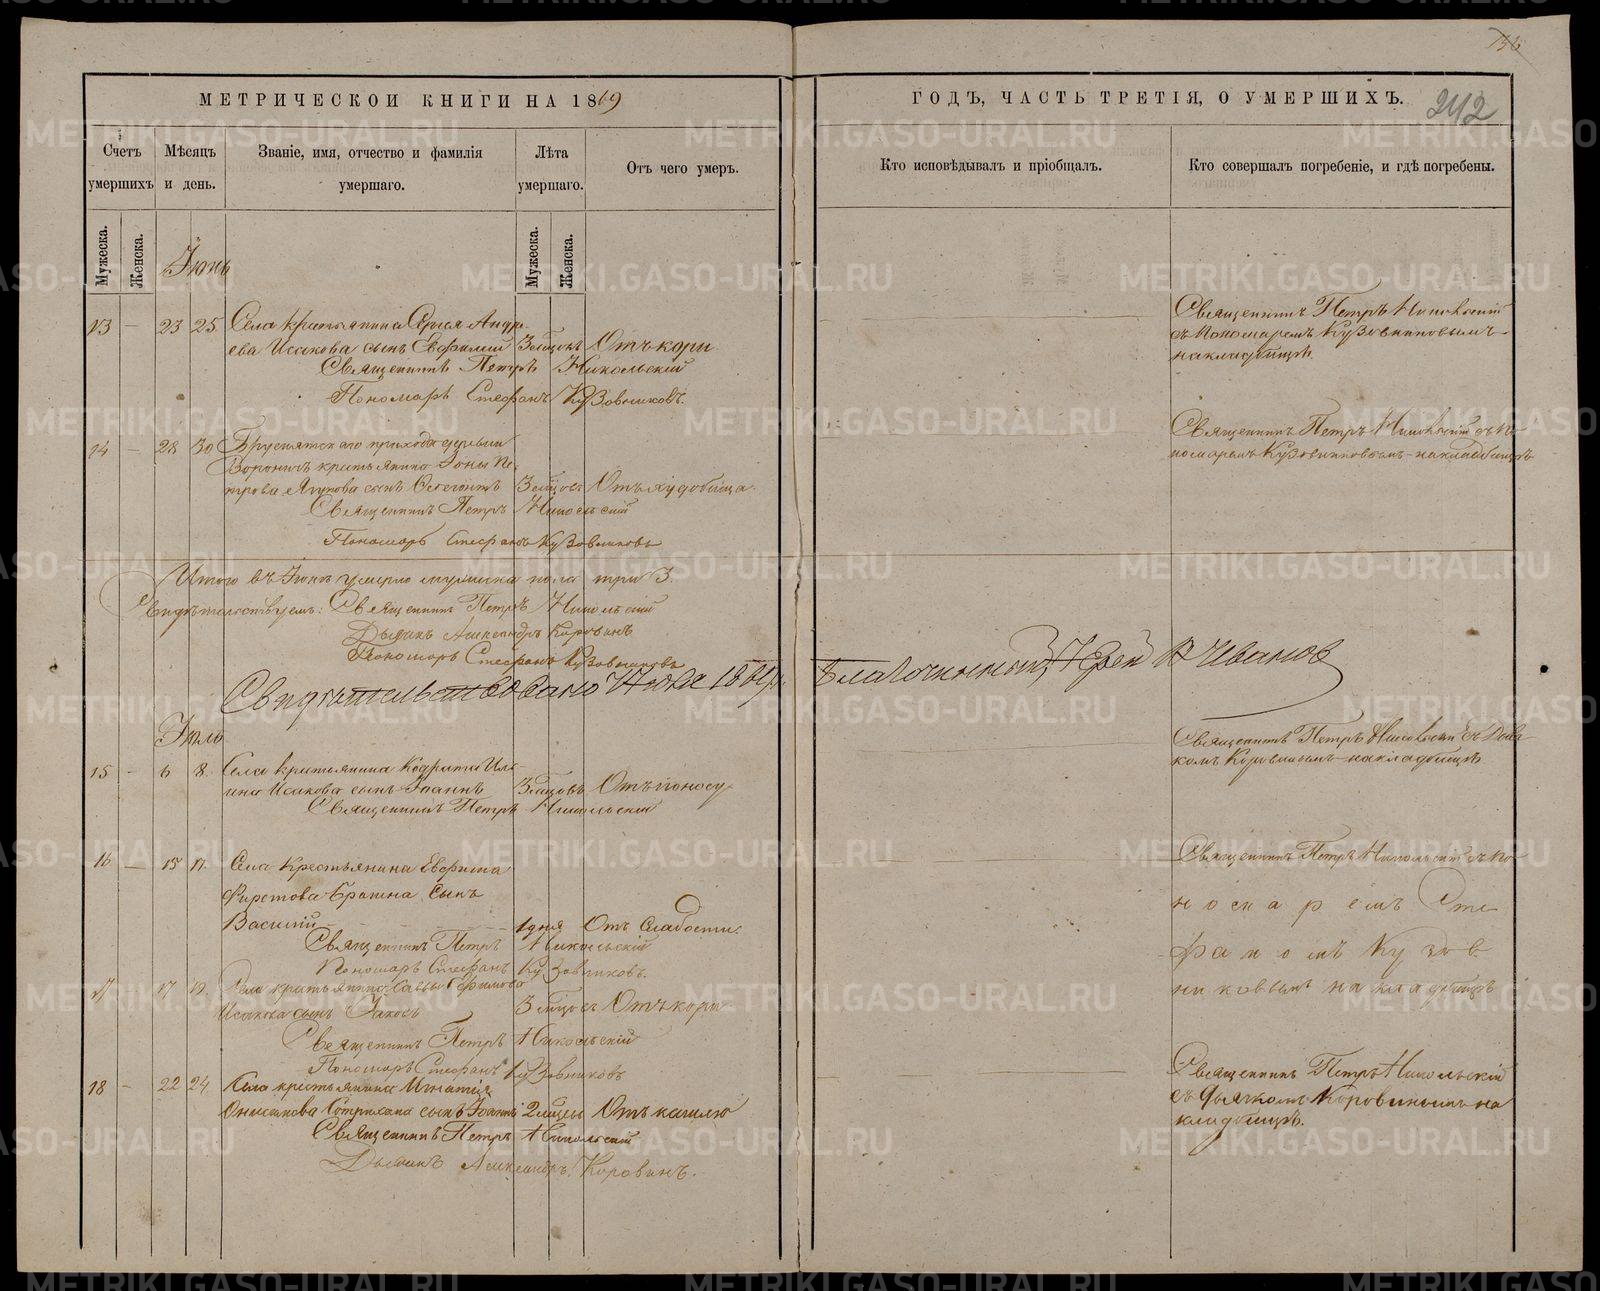 136
МЕТРИЧЕСКОЙ КНИГИ НА 1869
ГОДЪ, ЧАСТЬ ТРЕТІЯ, О УМЕРШИХЪ.
242
Счетъ умершихъ
Мѣсяцъ и день.
Званіе, имя, отчество и фамилія умершаго.
Лѣта умершаго.
Отъ чего умеръ.
Кто исповѣдывалъ и пріобщалъ.
Кто совершалъ погребеніе, и гдѣ погребены.
Мужеска.
Женска.
Мужеска.
Женска.
Іюнь
13 — 23 25 Села крестьянина Сергея Андре-
ева Исакова сынъ Евфимій 3 мѣсяц Отъ кори
Священникъ Петръ Никольскій
Пономарь Стефанъ Кузовниковъ.
Священникъ Петръ Никольскій
съ Пономаремъ Кузовниковымъ
на кладбищѣ.
14 — 28 30 прихода деревни
крестьянина Іоны Пе-
трова сынъ 3 мѣсяц Отъ
Священникъ Петръ Никольскій
Пономарь Стефанъ Кузовниковъ
Священникъ Петръ Никольскій съ По-
номаремъ Кузовниковымъ на кладбищѣ
Итого въ Іюнѣ умерло мужеска пола три 3.
Свидѣтельствуемъ: Священникъ Петръ Никольскій
Дьячекъ Александръ Коровинъ
Пономарь Стефанъ Кузовниковъ
Свидѣтельствовано Благочинный, Іерей Ивановъ
Іюль
15 — 6 8. Села крестьянина Кодрата Иль-
ина Исакова сынъ Іоаннъ 3 мѣсяцовъ Отъ поносу
Священникъ Петръ Никольскій
Священникъ Петръ Никольскій съ Дьяч-
комъ Коровинымъ на кладбищѣ
16 — 15 17. Села Крестьянина Евфима
сынъ
Василій 1 дня Отъ Слабости.
Священникъ Петръ Никольскій
Пономарь Стефанъ Кузовниковъ.
Священникъ Петръ Никольскій съ По-
номаремъ Сте-
фаномъ Кузов-
никовымъ на кладбищѣ
17 — 17 19. Села крестьянина Саввы Ефимова
Исакова сынъ Іаковъ 3 мѣсяцъ Отъ кори
Священникъ Петръ Никольскій
Пономарь Стефанъ Кузовниковъ
18 — 22 24 Села крестьянина Игнатія
сынъ Іоаннъ 2 мѣсяц Отъ кашлю
Священникъ Петръ Никольскій
Дьячекъ Александръ Коровинъ.
Священникъ Петръ Никольскій
съ Дьячкомъ Коровинымъ на
кладбищѣ.
METRIKI.GASO-URAL.RU